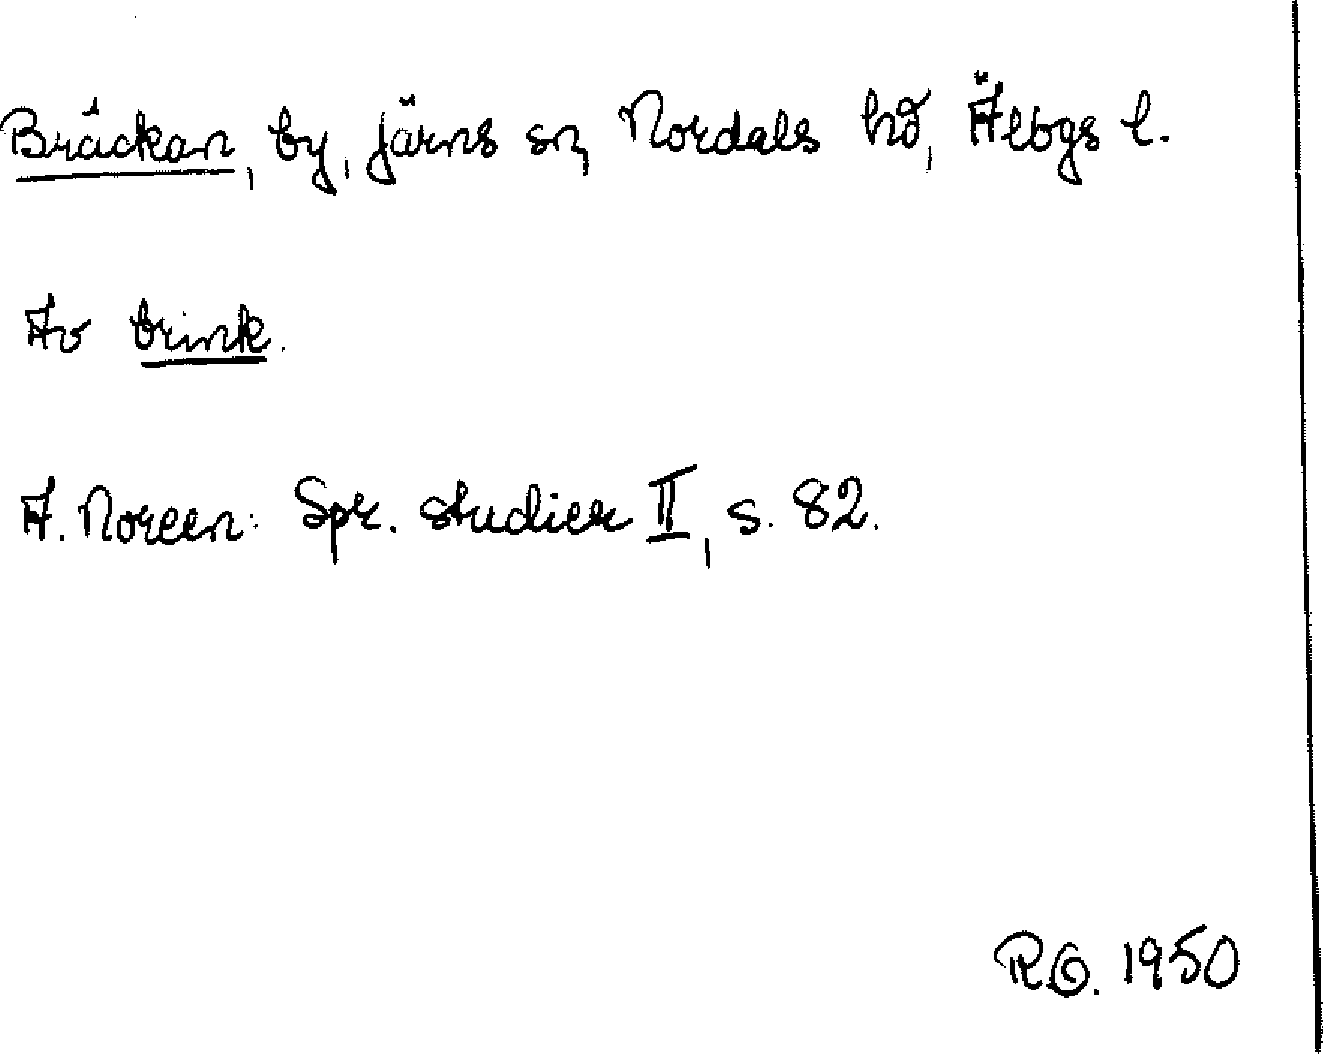 Bräckan, by, Järns sn, Nordals hd, Älvbgs l.
Av brink.
A. Noreen: Spr. studier II, s. 82.
R.G. 1950